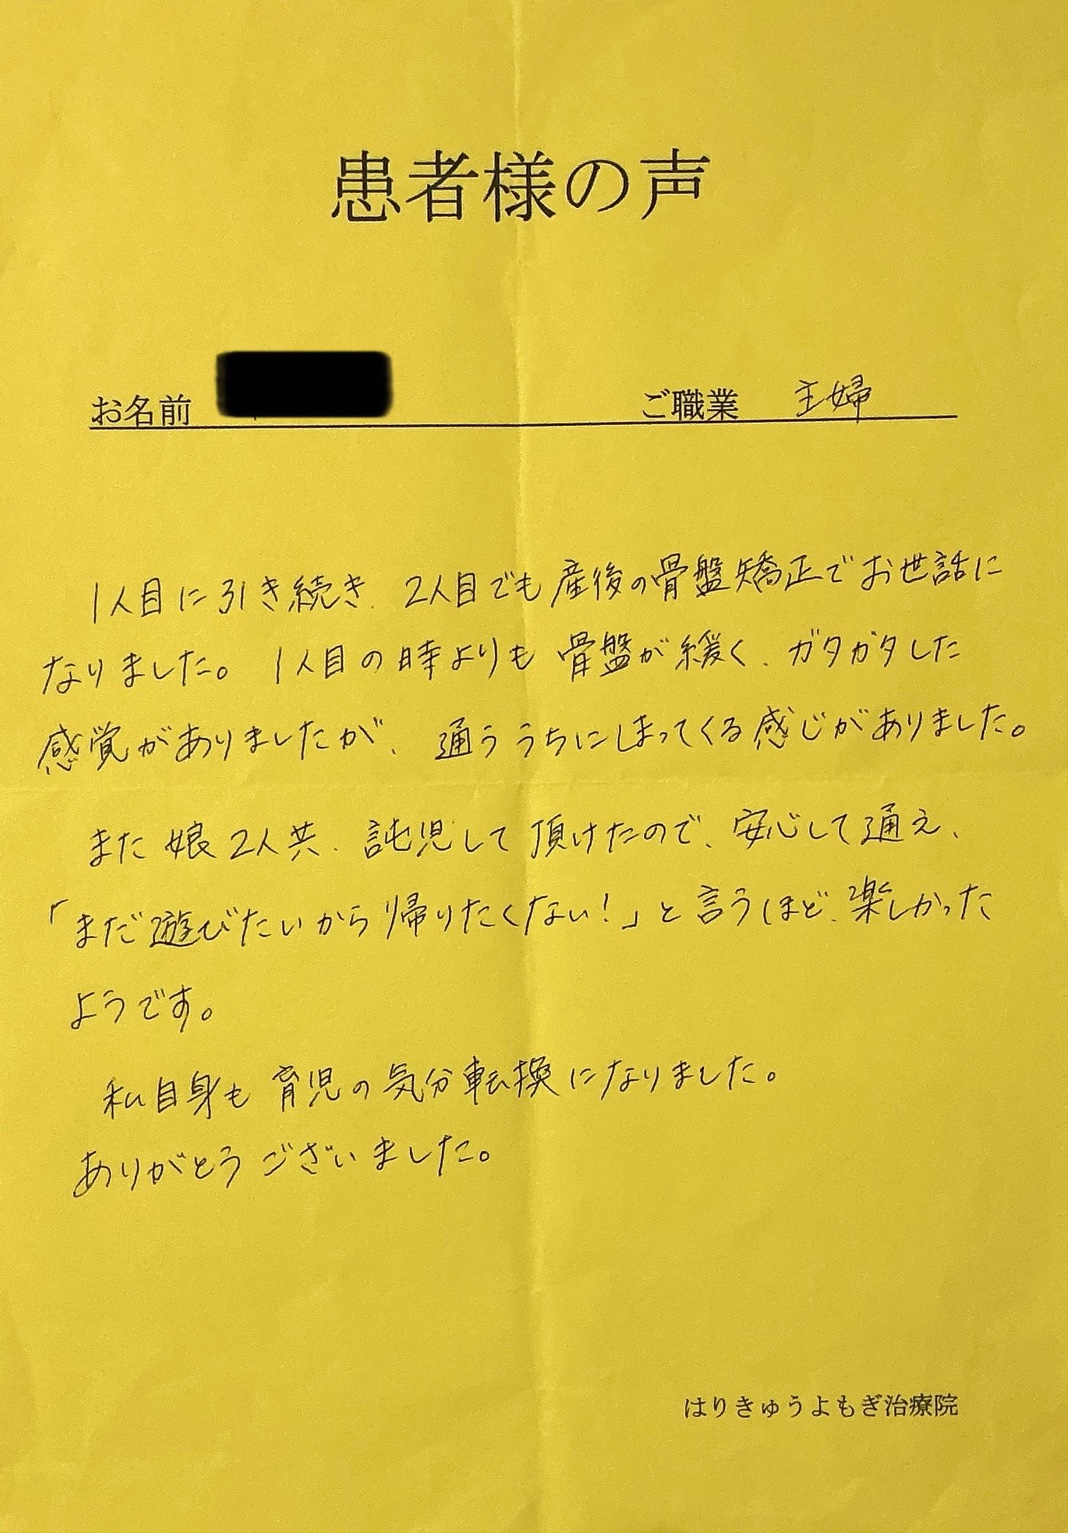 患者様の声
お名前 ご職業 主婦
1人目に引き続き、2人目でも産後の骨盤矯正でお世話に
なりました。1人目の時よりも骨盤が緩く、ガタガタした
感覚がありましたが、通ううちにしまってくる感じがありました。
また娘2人共、託児して頂けたので、安心して通え、
「まだ遊びたいから帰りたくない!」と言うほど、楽しかった
ようです。
私自身も育児の気分転換になりました。
ありがとうございました。
はりきゅうよもぎ治療院